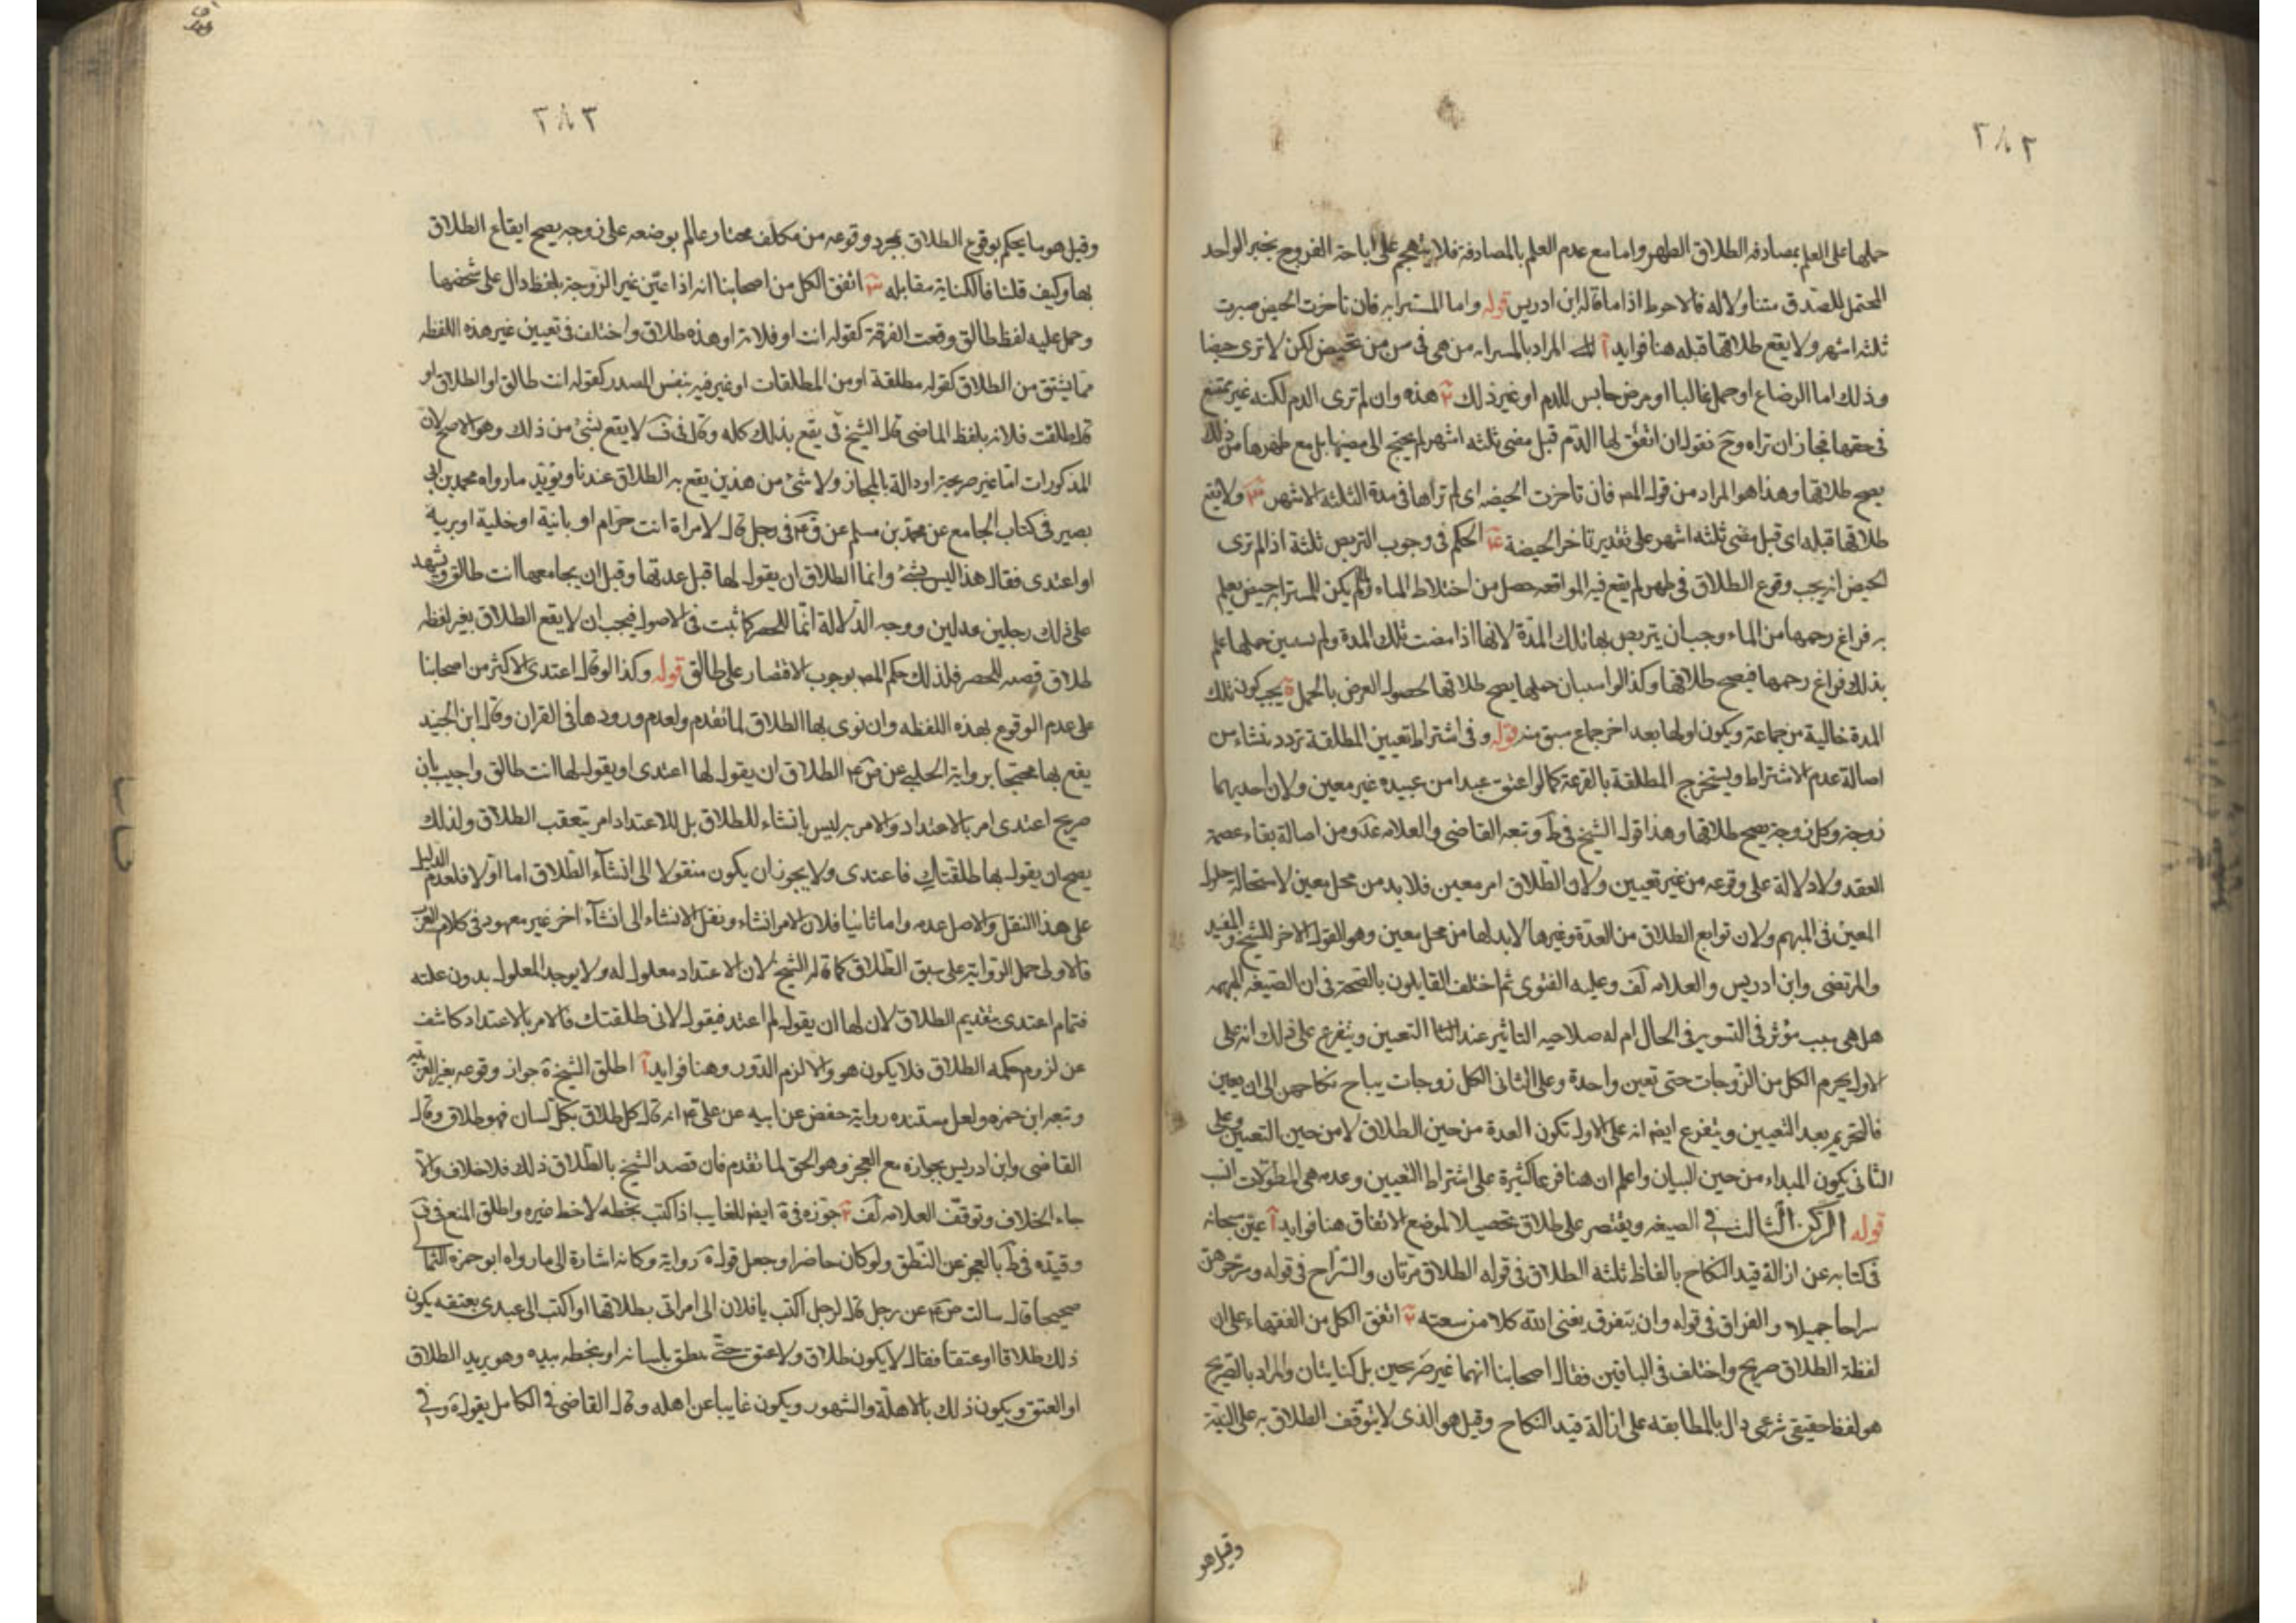 ٢٨٢
حملها على العلم بمصادفه الطلاق الطهر واما مع عدم العلم بالمصادفة فلا يتهجم على اباحة الفروج بخبر الواحد
المحتمل للصدق متنا ودلاله فالاحوط اذا ما قاله ابن ادريس قوله واما المسترابه فان تاخرت الحيض صبرت
ثلثه اشهر ولا يقع طلاقها قبله هنا فوايد آ المراد بالمسترابه من هى فى سن من تحيض لكن لا ترى حيضا
وذلك اما الرضاع او حمل غالبا او مرض حابس للدم او غير ذلك ٢ هذه وان لم ترى الدم لكنه غير ممتنع
فى حقها فجاز ان تراه وح نقول ان اتفق لها الدم قبل مضى ثلثه اشهر لم يحتج الى مضيها بل مع طهرها من ذلك
يصح طلاقها وهذا هو المراد من قول المص فان تاخرت الحيضه اى لم تراها فى مدة الثلثه الاشهر ٣ ولا يقع
طلاقها قبله اى قبل مضى ثلثه اشهر على تقدير تاخر الحيضة ٤ الحكم فى وجوب التربص ثلثة اذا لم ترى
الحيض انه يجب وقوع الطلاق فى طهر لم يقع فيه المواقعه حصل من اختلاط الماء ولم يكن للمسترابه حيض يعلم
به فراغ رحمها من الماء وجب ان يتربص بها تلك المدة لانها اذا مضت تلك المدة ولم يستبين حملها علم
بذلك فراغ رحمها فيصح طلاقها وكذا لو استبان حملها يصح طلاقها لحصول الغرض بالحمل ة يجب كون تلك
المدة خالية من جماعة ويكون اولها بعد اخر جماع سبق منه قوله و فى اشتراط تعيين المطلقة تردد ينشاء من
اصالة عدم الاشتراط ويستخرج المطلقة بالقرعة كما لو اعتق عبدا من عبيده غير معين ولان احديهما
زوجة وكل زوجة يصح طلاقها وهذا قول الشيخ فى ط وتبعه القاضى والعلامه عد ومن اصالة بقاء عصمة
العقد ولا دلالة على وقوعه من غير تعيين ولان الطلاق امر معين فلا بد من محل معين لاستحالة حلول
المعين فى المبهم ولان توابع الطلاق من العدة وغيرها لا بد لها من محل معين وهو القول الاخر للشيخ والمفيد
والمرتضى وابن ادريس والعلامه لف وعليه الفتوى ثم اختلف القايلون بالصحة فى ان الصيغه المبهمه
هل هى سبب مؤثر فى التسوير فى الحال ام له صلاحيه التاثير عند التعيين ويتفرع على ذلك انه على
الاول يحرم الكل من الزوجات حتى تعين واحدة وعلى الثانى الكل زوجات يباح نكاحهن الى ان يعين
فالتحريم بعد التعيين ويتفرع ايض انه على الاول تكون العدة من حين الطلاق لا من حين التعيين وعلى
الثانى يكون المبداء من حين البيان واعلم ان هنا فروعا كثيرة على اشتراط التعيين وعدمه هى المطولات انسب
قوله الركن الثالث فى الصيغه ويقتصر على طلاق تحصيلا لموضع الاتفاق هنا فوايد آ عيّن سبحانه
فى كتابه عن ازالة قيد النكاح بالفاظ ثلثة الطلاق فى قوله الطلاق مرتان والسّراح فى قوله وسرحوهن
سراحا جميلا والفراق فى قوله وان يتفرقا يغنى الله كلا من سعته ٢ اتفق الكل من الفقهاء على ان
لفظة الطلاق صريح واختلف فى الباقين فقال اصحابنا انهما غير صريحين بل كنايتان والمراد بالصريح
هو لفظ حقيقى شرعى دال بالمطابقه على ازالة قيد النكاح وقيل هو الذى لا يتوقف الطلاق به على النية
وقيل هو
٢٨٣
وقيل هو ما يحكم بوقوع الطلاق بمجرد وقوعه من مكلف مختار عالم بوضعه على زوجه يصح ايقاع الطلاق
بها وكيف قلنا فالكناية مقابله ٣ اتفق الكل من اصحابنا انه اذا عيّن غير الزوجة بلفظ دال على شخصها
وحمل عليه لفظ طالق وقعت الفرقة كقوله انت او فلانة او هذه طلاق واختلف فى تعيين غير هذه اللفظه
مما يشتق من الطلاق كقوله مطلقة او من المطلقات او غير فيه بنفس المصدر كقوله انت طالق او الطلاق او
قال طلقت فلانه بلفظ الماضى قال الشيخ فى يقع بذلك كله وقال فى ف لا يقع بشئ من ذلك وهو الاصح لان
المذكورات اما غير صريحة او دالة بالمجاز ولا شئ من هذين يقع به الطلاق عندنا ويؤيد ما رواه محمد بن ابى
بصير فى كتاب الجامع عن محمد بن مسلم عن ق ع فى رجل قال لامراة انت حرام او باينة او خلية او برية
او اعتدى فقال هذا ليس بشئ وانما الطلاق ان يقول لها قبل عدتها وقبل ان يجامعها انت طالق ويشهد
على ذلك رجلين عدلين ووجه الدلالة انّما للحصر كما ثبت فى الاصول فيجب ان لا يقع الطلاق بغير لفظه
طلاق قصه للحصر فلذلك حكم المص بوجوب الاقتصار على طالق قوله وكذا لو قال اعتدى الاكثر من اصحابنا
على عدم الوقوع بهذه اللفظه وان نوى بها الطلاق لما تقدم ولعدم ورودها فى القران وقال ابن الجنيد
يقع بها محتجا برواية الحلبى عن ق ع الطلاق ان يقول لها اعتدى او يقول لها انت طالق واجيب بان
صريح اعتدى امر بالاعتداد والامر به ليس بانشاء للطلاق بل للاعتداد امر يتعقب الطلاق ولذلك
يصح ان يقول بها طلقتك فاعتدى ولا يجوز ان يكون منقولا الى انشاء الطلاق اما اولا فلعدم الدليل
على هذا النقل والاصل عدمه واما ثانيا فلان الامر انشاء ونقل الانشاء الى انشاء اخر غير معهود فى كلام العرب
فالاولى حمل الرواية على سبق الطلاق كما قاله الشيخ لان الاعتداد معلول له ولا يوجد المعلول بدون علته
فتمام اعتدى بتقديم الطلاق لان لها ان يقول لم اعتد فيقول لانى طلقتك فالامر بالاعتداد كاشف
عن لزوم حكمه الطلاق فلا يكون هو والا لزم الدور وهنا فوايد آ اطلق الشيخ ة جواز وقوعه بغير العربيه
وتبعه ابن حمزه ولعل مستنده رواية حفص عن ابيه عن على ع انه قال كل طلاق بكل لسان فهو طلاق وقال
القاضى وابن ادريس بجوازه مع العجز وهو الحق لما تقدم فان قصد الشيخ بالطلاق ذلك فلا خلاف والا
جاء الخلاف وتوقف العلامه لف ٢ جوزه فى ة ايض للغايب اذا كتب بخطه لا خط غيره واطلق المنع فى ف
وقيده فى ط بالعجز عن النطق ولو كان حاضرا وجعل قوله ة رواية وكانه اشارة الى ما رواه ابو حمزه الثمالى
صحيحا قال سالت ع عن رجل قال لرجل اكتب يا فلان الى امراتى بطلاقها او اكتب الى عبدى بعتقه يكون
ذلك طلاقا او عتقا فقال لا يكون طلاق ولا عتق حتى ينطق بلسانه او بخطه بيده وهو يريد الطلاق
او العتق ويكون ذلك بالاهلة والشهور ويكون غايبا عن اهله وقال القاضى فى الكامل يقول ة وفى